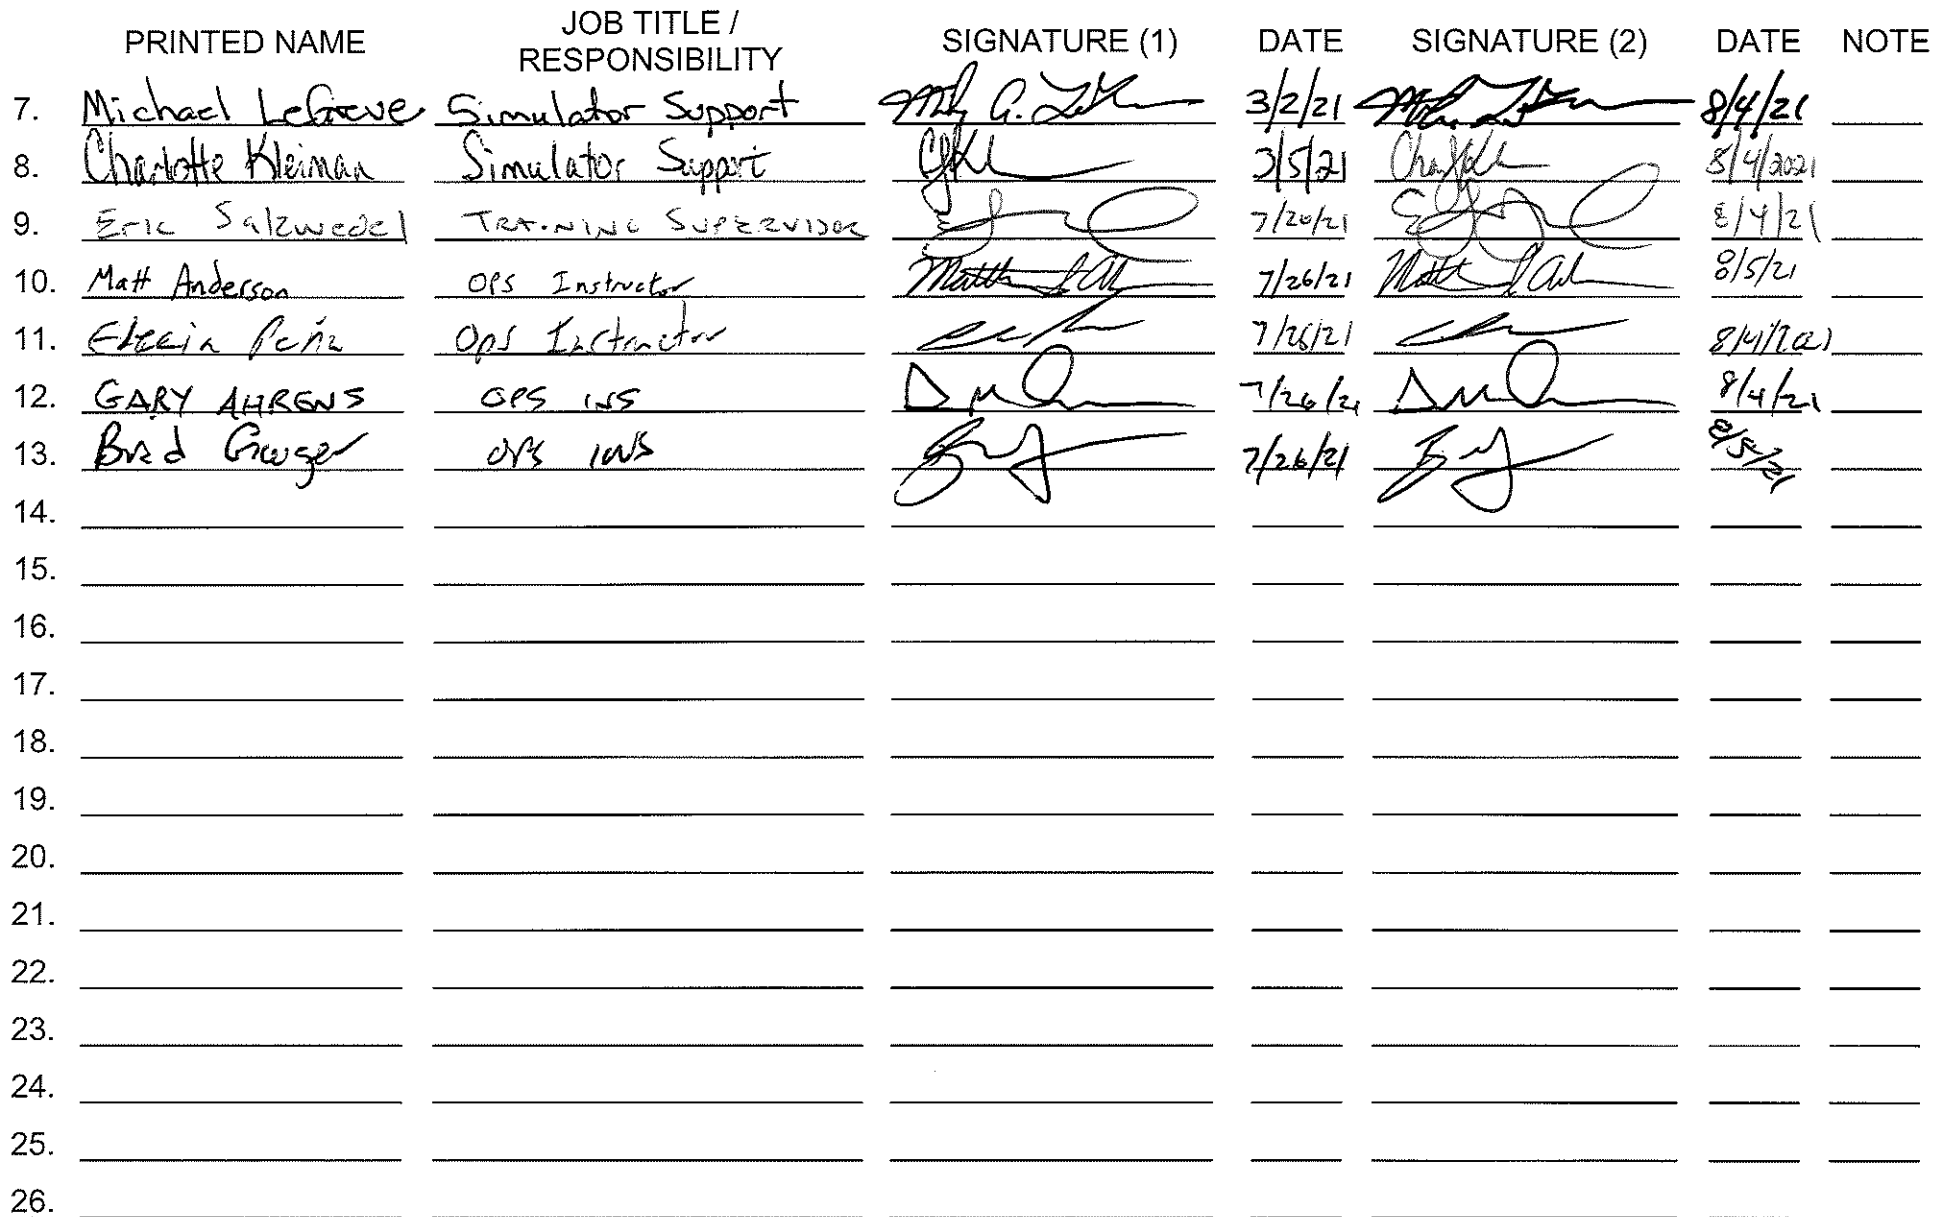 PRINTED NAME JOB TITLE / RESPONSIBILITY SIGNATURE (1) DATE SIGNATURE (2) DATE NOTE
7. Michael LeGreve Simulator Support 3/2/21 8/4/21
8. Charlotte Kleiman Simulator Support 3/5/21 8/4/2021
9. Eric Salzwedel TRAINING SUPERVISOR 7/20/21 8/4/21
10. Matt Anderson OPS Instructor 7/26/21 8/5/21
11. Peña Ops Instructor 7/26/21
12. GARY AHRENS OPS INS 7/26/21 8/4/21
13. Brad OPS INS 7/26/21 8/5/21
14.
15.
16.
17.
18.
19.
20.
21.
22.
23.
24.
25.
26.